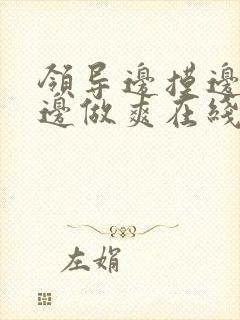 領导邊摸邊
邊做爽在綫
左娟